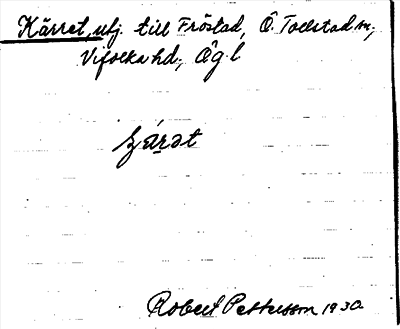 Kärret, utj. till Fröstad, Ö. Tollstad sn,
Vifolka hd., Ögl
Robert Pettersson 1930